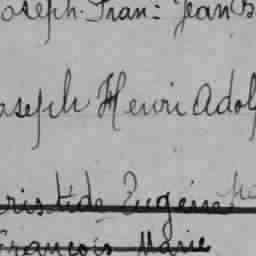 oseph. Fran: Jean B
oseph Henri Adol
ristide Eugèn
François Marie